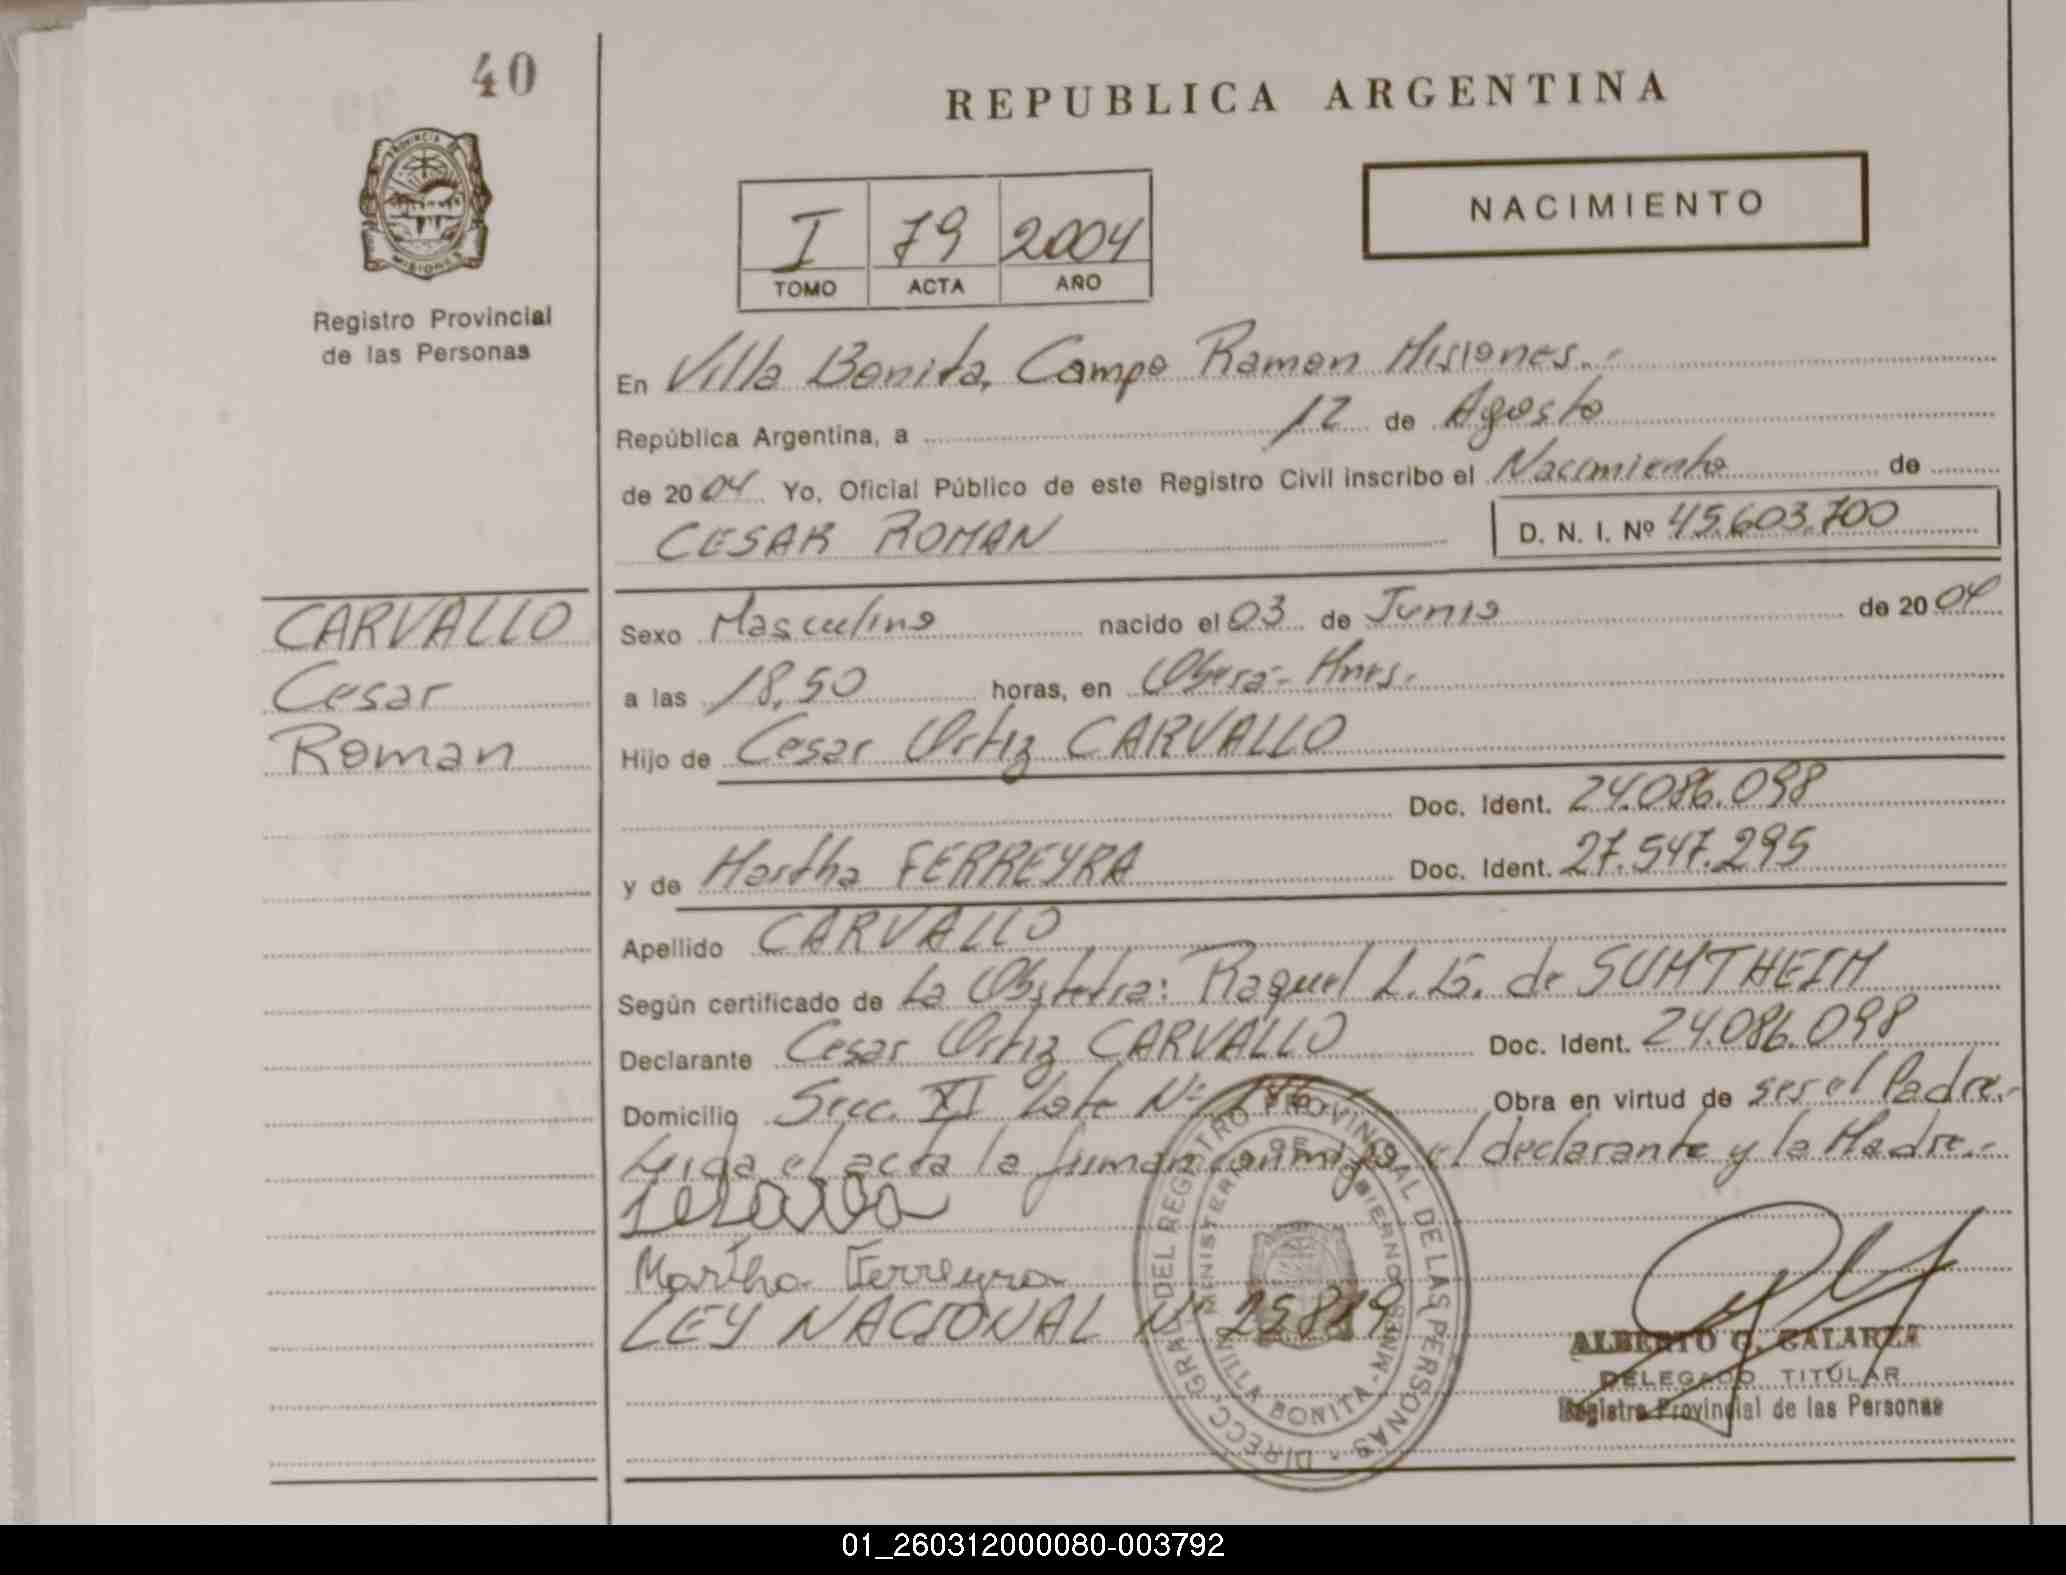 40
PROVINCIA DE
MISIONES
Registro Provincial
de las Personas
REPUBLICA ARGENTINA
I 79 2004
TOMO ACTA AÑO
NACIMIENTO
En Villa Bonita, Campo Ramon Misiones.-
República Argentina, a 12 de Agosto
de 2004 Yo, Oficial Público de este Registro Civil inscribo el Nacimiento de
CESAR ROMAN D. N. I. Nº 45.603.700
CARVALLO
Cesar
Roman
Sexo Masculino nacido el 03 de Junio de 2004
a las 18,50 horas, en Oberá - Mnes.
Hijo de Cesar Ortiz CARVALLO
Doc. Ident. 24.086.098
y de Martha FERREYRA Doc. Ident. 27.547.295
Apellido CARVALLO
Según certificado de La Obstetra: Raquel L. G. de SUMTHEIM
Declarante Cesar Ortiz CARVALLO Doc. Ident. 24.086.098
Domicilio Secc. XI Lote Nº Obra en virtud de ser el Padre.-
Leida el acta la firman conmigo el declarante y la Madre.-
Martha Ferreyra
LEY NACIONAL Nº 25819
DIRECC. GRAL. DEL REGISTRO PROVINCIAL DE LAS PERSONAS
MINISTERIO DE GOBIERNO
VILLA BONITA - MNES
ALBERTO G. GALARZA
DELEGADO TITULAR
Registro Provincial de las Personas
01_260312000080-003792